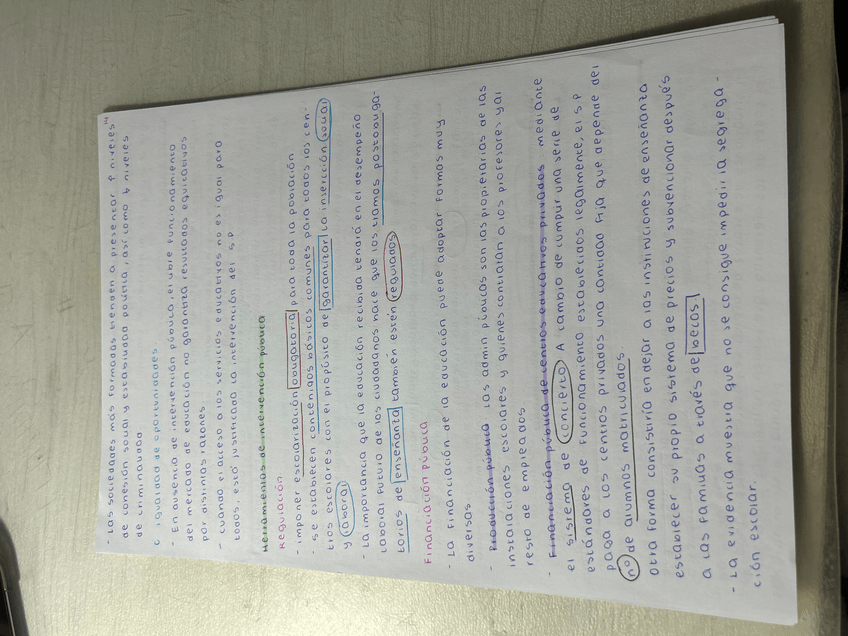 - Las sociedades más formadas tienden a presentar ↑ niveles
de cohesión social y estabilidad política, así como ↓ niveles
de criminalidad
C igualdad de oportunidades
- En ausencia de intervención pública, el libre funcionamiento
del mercado de educación no garantiza resultados equitativos
por distintas razones
- cuando el acceso a los servicios educativos no es igual para
todos, está justificada la intervención del SP
Herramientas de intervención pública
Regulación
- imponer escolarización obligatoria para toda la población
- se establecen contenidos básicos comunes para todos los cen-
tros escolares con el propósito de garantizar la inserción social
y laboral
- La importancia que la educación recibida tendrá en el desempeño
laboral futuro de los ciudadanos hace que los tramos postobliga-
torios de enseñanza también estén regulados
Financiación pública
- La financiación de la educación puede adoptar formas muy
diversas
- Producción pública Las admin públicas son las propietarias de las
instalaciones escolares y quienes contratan a los profesores y al
resto de empleados
- Financiación pública de centros educativos privados mediante
el sistema de concierto A cambio de cumplir una serie de
estándares de funcionamiento establecidos legalmente, el SP
paga a los centros privados una cantidad fija que depende del
nº de alumnos matriculados.
Otra forma consistiría en dejar a las instituciones de enseñanza
establecer su propio sistema de precios y subvencionar después
a las familias a través de becas
- La evidencia muestra que no se consigue impedir la segrega-
ción escolar.